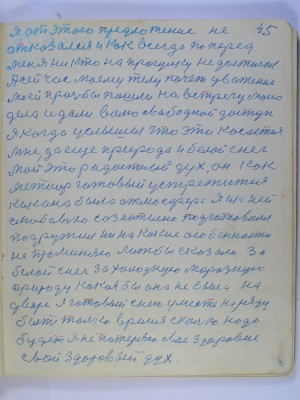 45
Я от этого предложение не
отказался и как всегда поперед
меня никто на прогулку не
я сейчас моему телу почет уважение
моей прозьбы пошли на встречу моего
дела и дали волю свободной доступ
я когда услышел что это касается
мне, да еще природа и белой снег
мой это радостной дух, он как
готовый устретится
какая бы не была атмосфера я с ней
с любовью сознательно подготовился
подружил ни на какие особенности
не променяю Люжбы сказали За
белой снег За холодную морозную
природу какая бы она не была на
дворе я готовый с нею уместе на ряду
быть только время сколько надо
будет я не потеряю свое здоровие
свой здоровый дух.